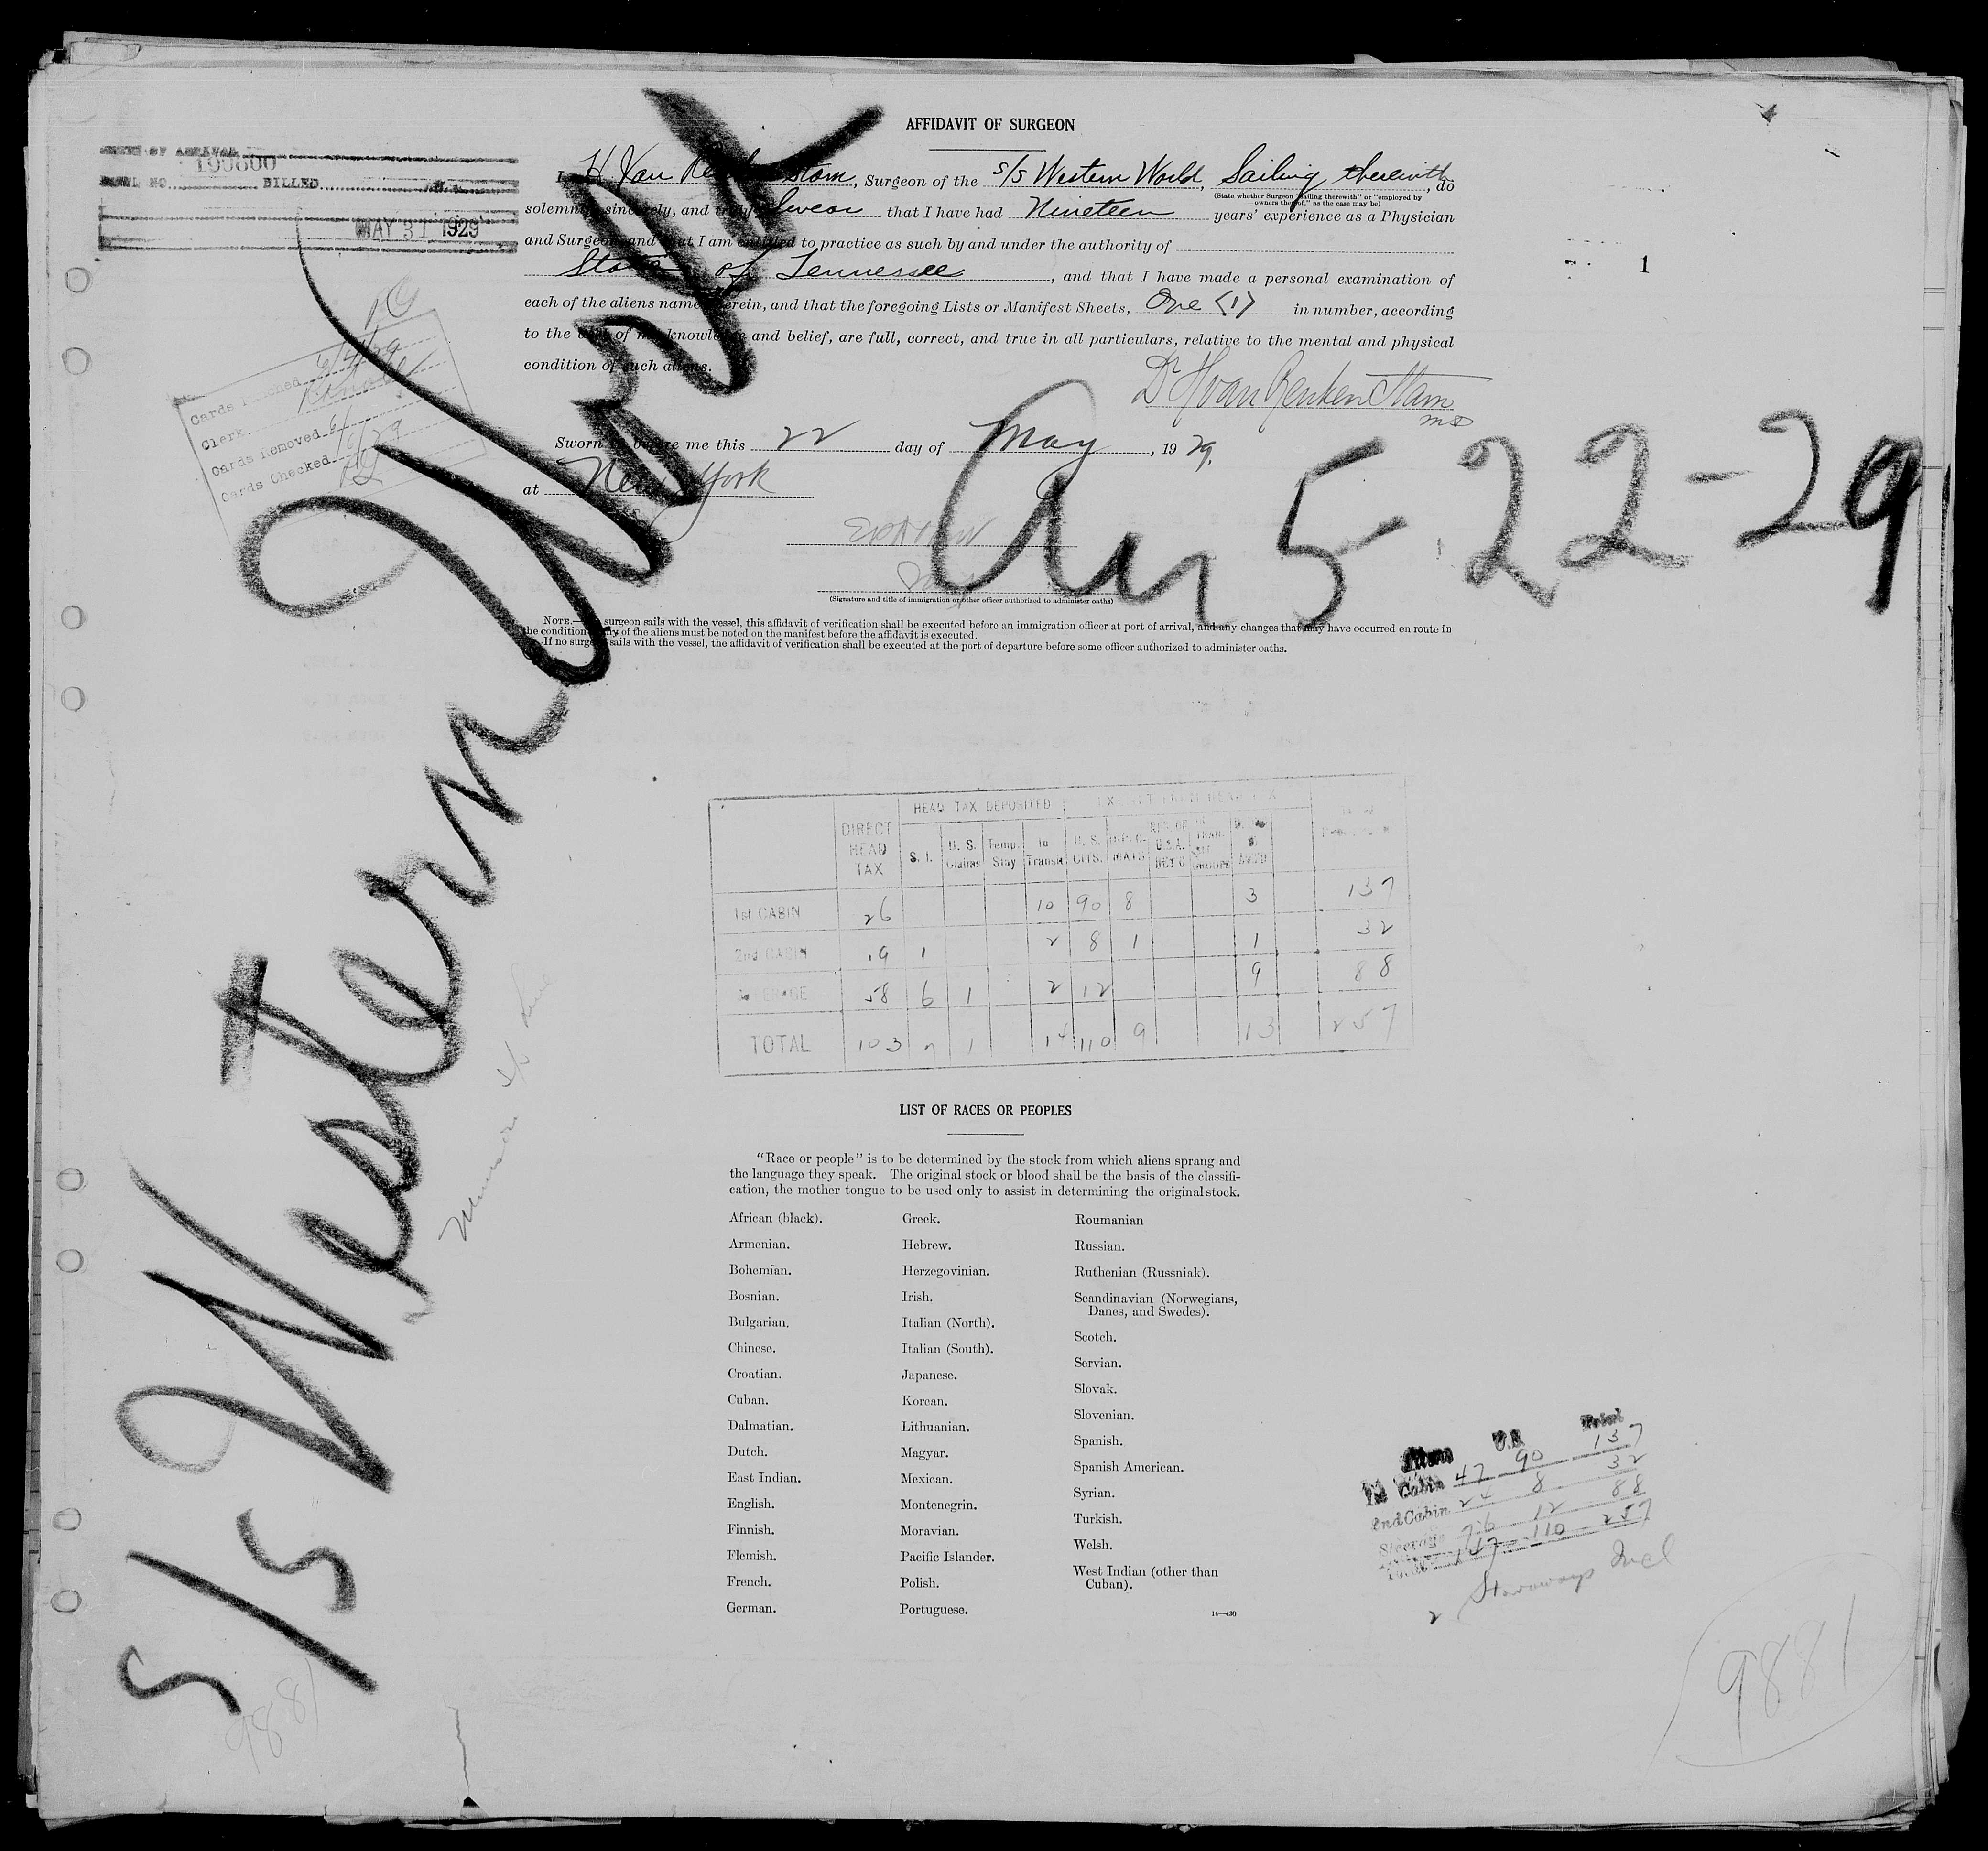 AFFIDAVIT OF SURGEON
199600
BILLED
MAY 31 1929
I, H. Van stam, Surgeon of the S/S Western World, Sailing therewith, do
(State whether Surgeon "sailing therewith" or "employed by
owners thereof," as the case may be)
solemnly, sincerely, and truly swear that I have had Nineteen years' experience as a Physician
and Surgeon, and that I am entitled to practice as such by and under the authority of
State of Tennessee, and that I have made a personal examination of
each of the aliens named herein, and that the foregoing Lists or Manifest Sheets, One (1) in number, according
to the best of my knowledge and belief, are full, correct, and true in all particulars, relative to the mental and physical
condition of such aliens.
1
Cards 6/5/29
Clerk
Cards Removed 6/6/29
Cards Checked
Sworn to before me this 22 day of May, 1929.
at New York
Arr 5-22-29
(Signature and title of immigration or other officer authorized to administer oaths)
NOTE.—If surgeon sails with the vessel, this affidavit of verification shall be executed before an immigration officer at port of arrival, and any changes that may have occurred en route in
the condition of any of the aliens must be noted on the manifest before the affidavit is executed.
If no surgeon sails with the vessel, the affidavit of verification shall be executed at the port of departure before some officer authorized to administer oaths.
S/S Western World
Munson S/S Line
HEAD TAX DEPOSITED EXEMPT FROM HEAD TAX
DIRECT HEAD TAX S. I. U. S. Claims Temp. Stay In Transit U. S. CITS. U.S.A.
1st CABIN 26 10 90 8 3 137
2nd CABIN 19 1 2 8 1 1 32
STEERAGE 58 6 1 2 12 9 88
TOTAL 103 7 1 14 110 9 13 257
LIST OF RACES OR PEOPLES
"Race or people" is to be determined by the stock from which aliens sprang and
the language they speak. The original stock or blood shall be the basis of the classifi-
cation, the mother tongue to be used only to assist in determining the original stock.
African (black).
Armenian.
Bohemian.
Bosnian.
Bulgarian.
Chinese.
Croatian.
Cuban.
Dalmatian.
Dutch.
East Indian.
English.
Finnish.
Flemish.
French.
German.
Greek.
Hebrew.
Herzegovinian.
Irish.
Italian (North).
Italian (South).
Japanese.
Korean.
Lithuanian.
Magyar.
Mexican.
Montenegrin.
Moravian.
Pacific Islander.
Polish.
Portuguese.
Roumanian
Russian.
Ruthenian (Russniak).
Scandinavian (Norwegians,
Danes, and Swedes).
Scotch.
Servian.
Slovak.
Slovenian.
Spanish.
Spanish American.
Syrian.
Turkish.
Welsh.
West Indian (other than
Cuban).
14—430
Aliens U.S. Total
1st Cabin 47 90 137
2nd Cabin 24 8 32
Steerage 76 12 88
Total 147 110 257
2 Stowaways Incl
9881
9881